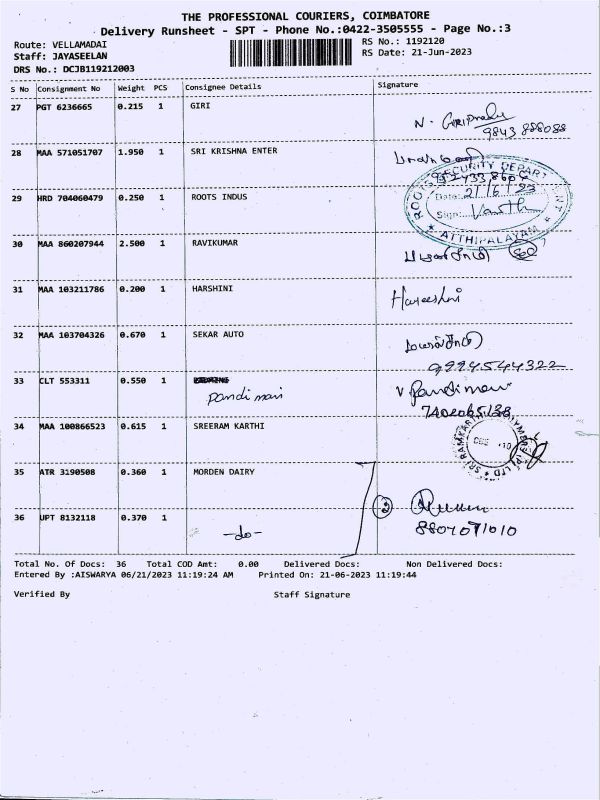 THE PROFESSIONAL COURIERS, COIMBATORE
Delivery Runsheet - SPT - Phone No.:0422-3505555 - Page No.:3
Route: VELLAMADAI RS No.: 1192120
Staff: JAYASEELAN RS Date: 21-Jun-2023
DRS No.: DCJB119212003
S No Consignment No Weight PCS Consignee Details Signature
27 PGT 6236665 0.215 1 GIRI
9843 888088
28 MAA 571051707 1.950 1 SRI KRISHNA ENTER
29 HRD 704060479 0.250 1 ROOTS INDUS
ROOTS SECURITY DEPARTMENT
Date: 21/6/23
Sign:
ATTHIPALAYAM
30 MAA 860207944 2.500 1 RAVIKUMAR
31 MAA 103211786 0.200 1 HARSHINI Hareeshni
32 MAA 103704326 0.670 1 SEKAR AUTO
9994544322
33 CLT 553311 0.550 1
pandi mari
34 MAA 100866523 0.615 1 SREERAM KARTHI
35 ATR 3190508 0.360 1 MORDEN DAIRY
36 UPT 8132118 0.370 1 -do- 2
8807071010
Total No. Of Docs: 36 Total COD Amt: 0.00 Delivered Docs: Non Delivered Docs:
Entered By :AISWARYA 06/21/2023 11:19:24 AM Printed On: 21-06-2023 11:19:44
Verified By Staff Signature